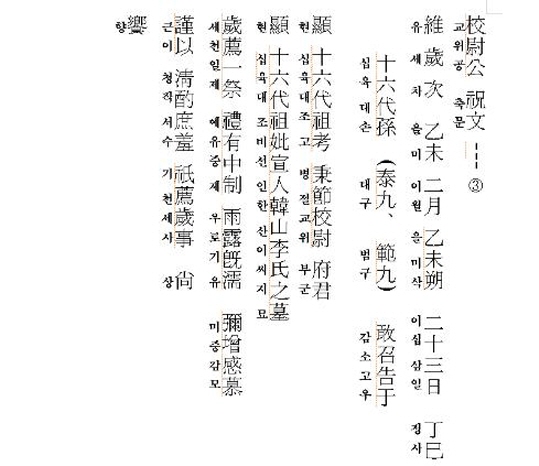 校尉公 祝文 --- ③
교위공 축문
維 歲次 乙未 二月 乙未朔 二十三日 丁巳
유 세차 을미 이월 을미삭 이십삼일 정사
十六代孫 (泰九、 範九) 敢召告于
십육대손 대구 범구 감소고우
顯 十六代祖考 秉節校尉 府君
현 십육대조고 병절교위 부군
顯 十六代祖妣宣人韓山李氏之墓
현 십육대조비선인한산이씨지묘
歲薦一祭 禮有中制 雨露旣濡 彌增感慕
세천일제 예유중제 우로기유 미증감모
謹以 淸酌庶羞 祇薦歲事 尙
근이 청작서수 기천세사 상
饗
향